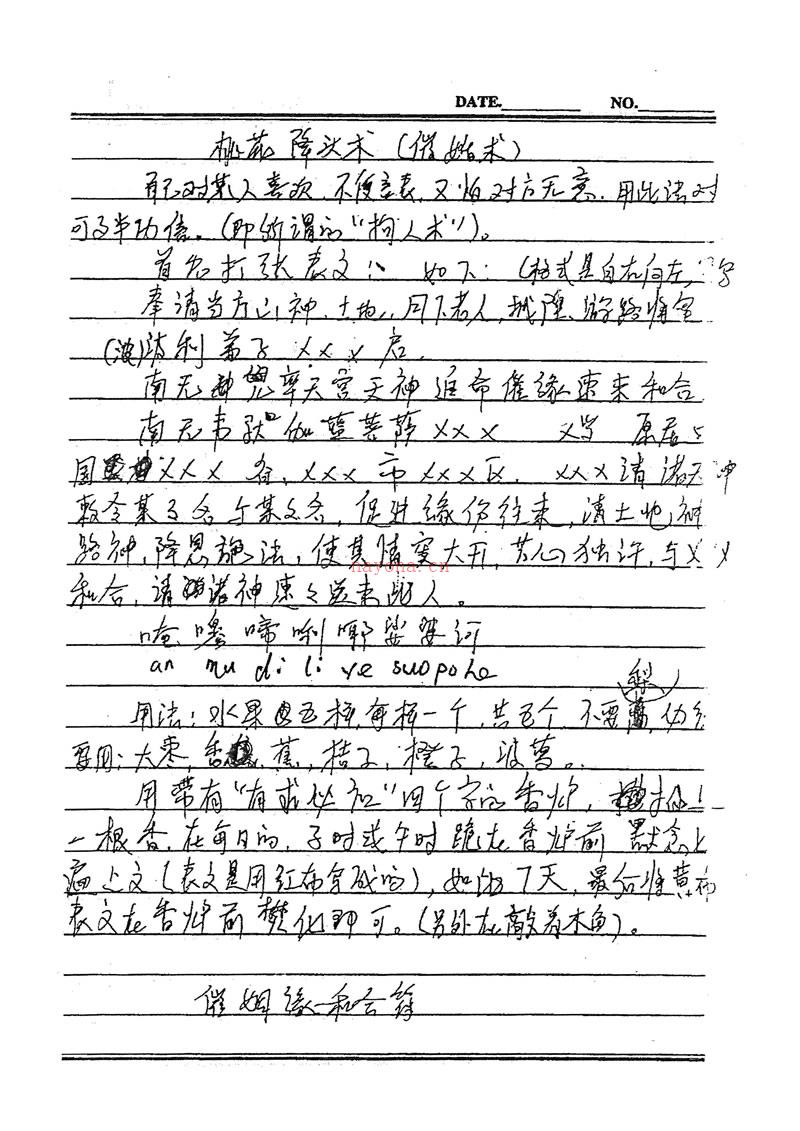 DATE. NO.
桃花降头术(催婚术)
有对某人喜欢,不便言表,又怕对方无意.用此法对
可事半功倍。(即所谓的"拘人术")。
首先打张表文: 如下:(格式是自右向左,字
奉请当方山神.土地,月下老人,城隍、游路将军
弟子 XXX 启.
南无兜率天宫天神 催缘速来和合
南无韦驮 伽蓝菩萨 XXX X岁 原居
国 XXX 省、XXX 市 XXX区. XXX 请诸天神
敕令某男名与某女名,促进缘份往来,请土地神
路神,降恩施法,使其情窦大开,芳心独许,与XX
和合,请诸神速速送来此人。
唵嘸啼唎耶娑婆诃
an mu di li ye suopohe
梨
用法:水果五种,每种一个,共五个 不要
要用:大枣,香蕉,桔子,橙子,菠萝。
用带有"有求必应"四个字的香炉,
一根香.在每日的,子时或午时跪在香炉前 默念上
遍上文(表文是用红布写成的),如此7天,最后将黄布
表文在香炉前焚化即可。(另外在敲着木鱼)。
催姻缘和合符
nayona.cn